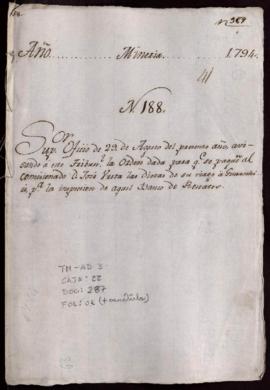 Año
Mineria
1794
N. 188.
Sup.or Oficio de 29 de Agosto del presente año, avi-
sando á este Tribun.l la Orden dada para q.e se paguen al
comisionado D. José las dietas de su viage á
p.a la inspeccion de aquel Banco de Rescates.
TM-AD 3
CAJA: 22
DOC: 287